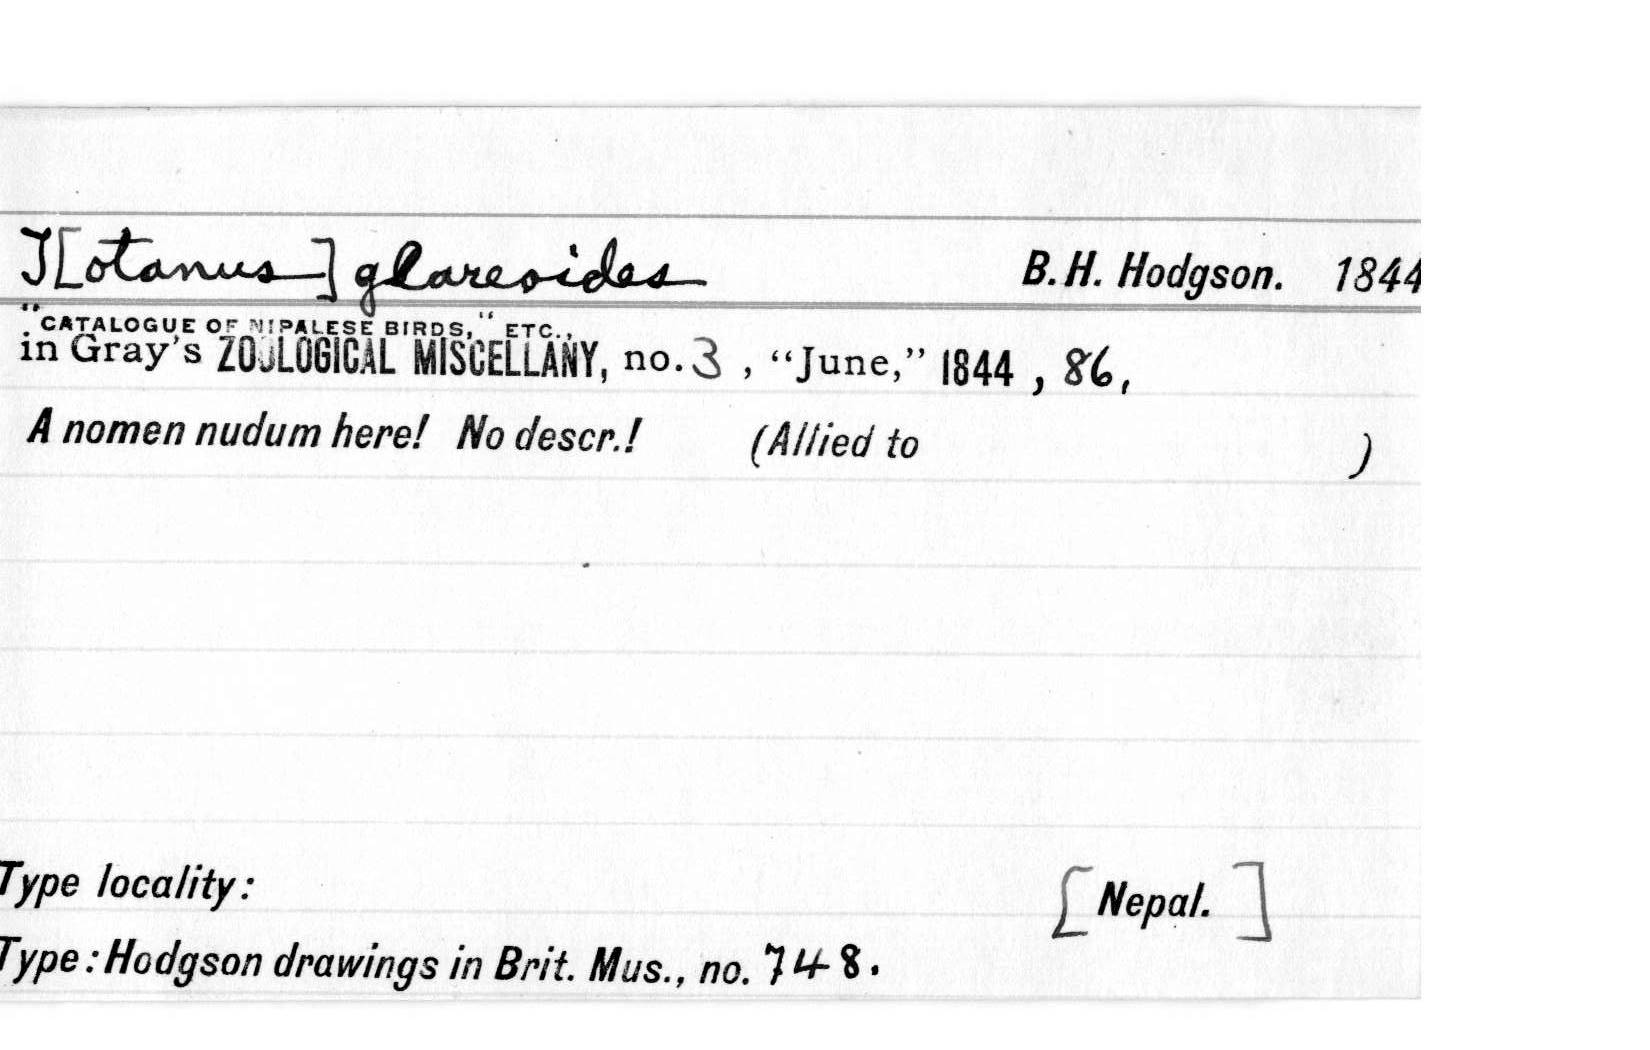 T[otanus] glareoides B.H. Hodgson. 1844
"CATALOGUE OF NIPALESE BIRDS," ETC.,
in Gray's ZOOLOGICAL MISCELLANY, no. 3, "June," 1844, 86,
A nomen nudum here! No descr.! (Allied to )
Type locality: [Nepal.]
Type: Hodgson drawings in Brit. Mus., no. 748.